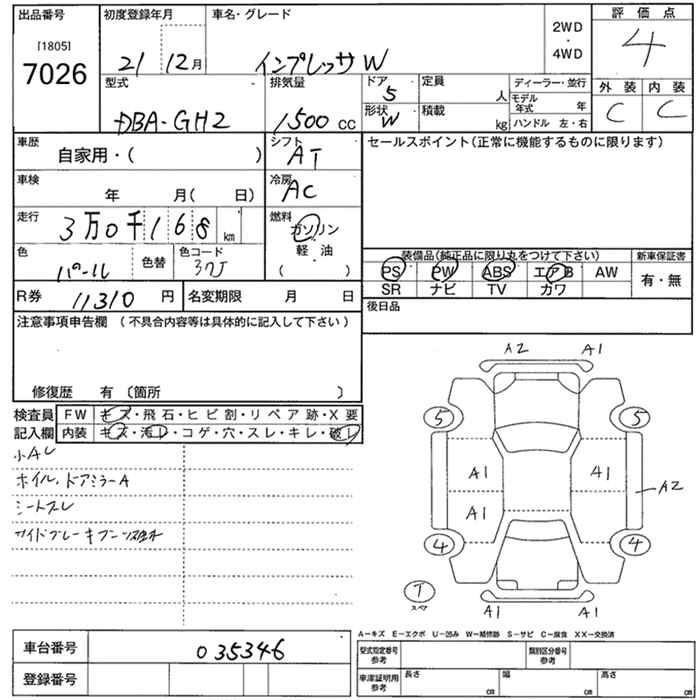 出品番号 初度登録年月 車名・グレード 2WD・4WD 評価点
[1805]
7026 21 12月 インプレッサW 4
型式 排気量 ドア 5 定員 人 ディーラー・並行 外装 内装
DBA-GH2 1500 cc 形状 W 積載 kg モデル年式 年 C C
ハンドル 左・右
車歴 自家用・( ) シフト AT セールスポイント(正常に機能するものに限ります)
車検 年 月( 日) 冷房 AC
走行 3万0千168 km 燃料 ガソリン
軽油
( )
色 パール 色替 色コード 37J 装備品(純正品に限り丸をつけて下さい) 新車保証書
PS PW ABS エアB AW 有・無
SR ナビ TV カワ
R券 11310 円 名変期限 月 日 後日品
注意事項申告欄 (不具合内容等は具体的に記入して下さい)
修復歴 有 〔箇所 〕
検査員 FW キズ・飛石・ヒビ割・リペア跡・X要
記入欄 内装 キズ・汚レ・コゲ・穴・スレ・キレ・破レ
小AU
ホイル、ドアミラーA
シートスレ
サイドブレーキブーツ破れ
A2 A1
5 5
A1 A1 A2
A1
4 4
T
スペア
A1 A1
A-キズ E-エクボ U-凹み W-補修跡 S-サビ C-腐食 XX-交換済
車台番号 035346 型式指定番号 参考 類別区分番号 参考
登録番号 車庫証明用 参考 長さ cm 幅 cm 高さ cm